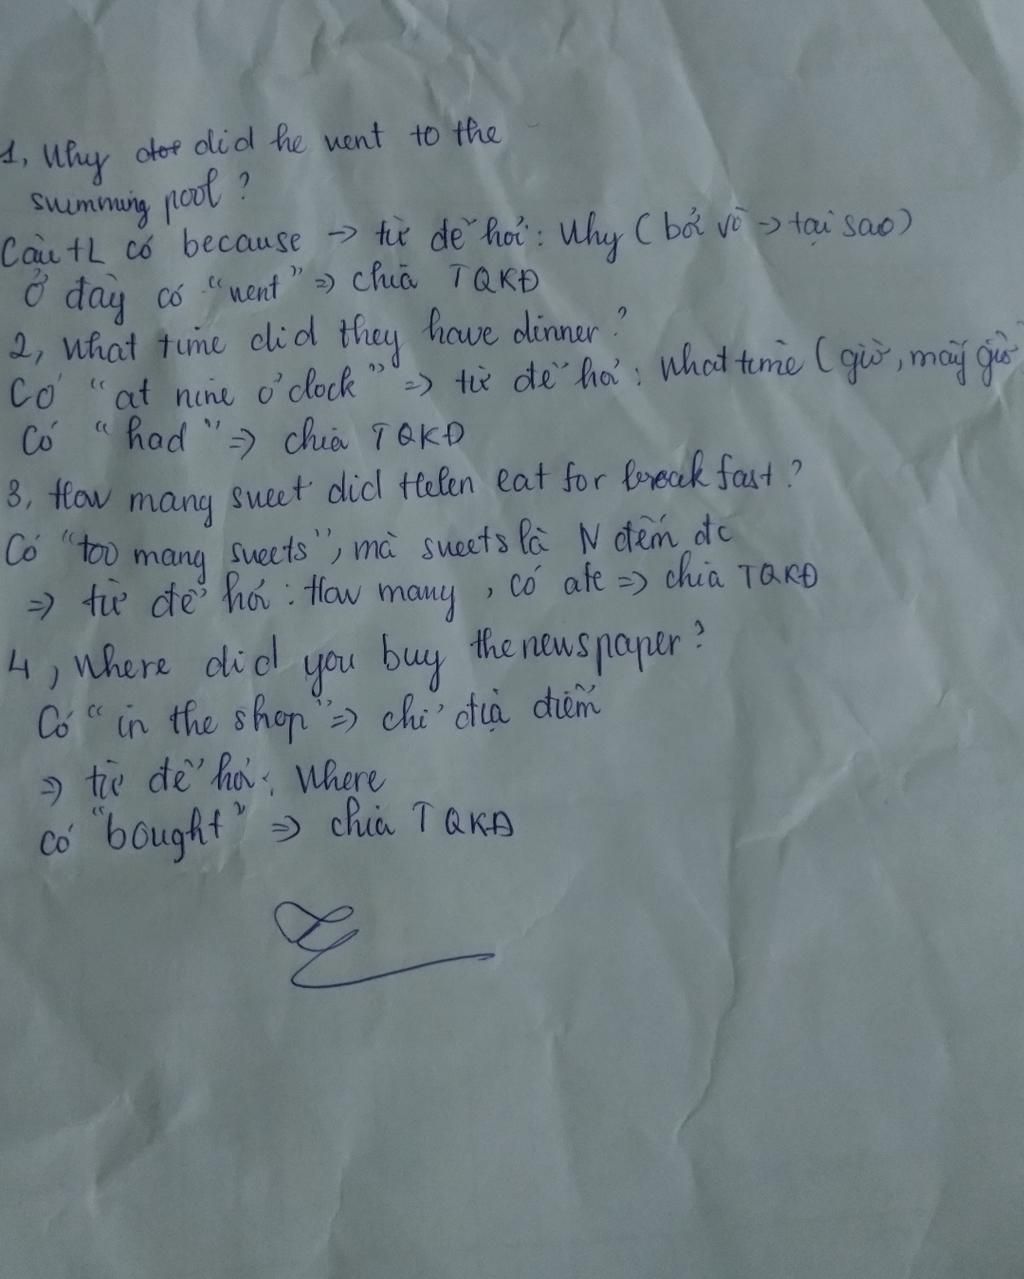 1, Why did he went to the
swimming pool?
Câu TL có because → từ để hỏi: Why (bởi vì → tại sao)
Ở đây có "went" => chia TQKĐ
2, What time did they have dinner?
Có "at nine o'clock" => từ để hỏi: What time (giờ, mấy giờ
Có "had" => chia TQKĐ
3, How many sweet did Helen eat for breakfast?
Có "too many sweets", mà sweets là N đếm đc
=> từ để hỏi: How many, có ate => chia TQKĐ
4, Where did you buy the newspaper?
Có "in the shop" => chỉ địa điểm
=> từ để hỏi: Where
có "bought" => chia TQKĐ